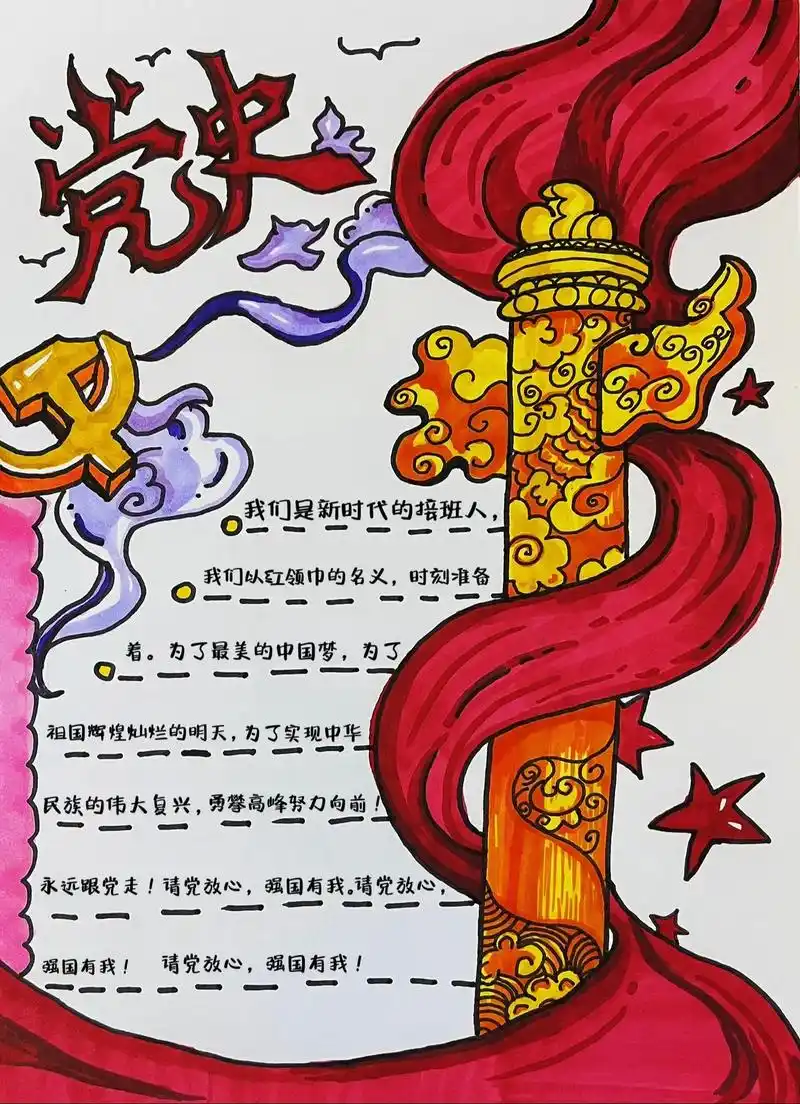 党史
我们是新时代的接班人，
我们以红领巾的名义，时刻准备
着。为了最美的中国梦，为了
祖国辉煌灿烂的明天，为了实现中华
民族的伟大复兴，勇攀高峰努力向前！
永远跟党走！请党放心，强国有我。请党放心，
强国有我！ 请党放心，强国有我！